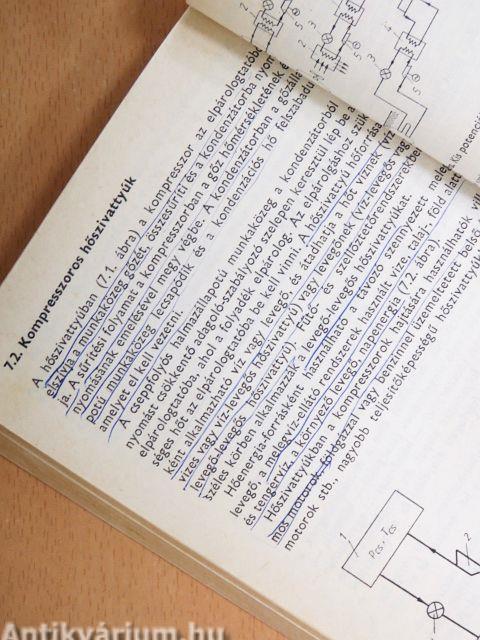 7.2. Kompresszoros hőszivattyúk
A hőszivattyúban (7.1. ábra) a kompresszor az elpárologtatóból
elszívja a munkaközeg gőzét, összesűríti és a kondenzátorba nyom-
ja. A sűrítési folyamat a kompresszorban a gőz hőmérsékletének é
nyomásának emelésével megy végbe. A kondenzátorban a gőzálla
potú munkaközeg lecsapódik és a kondenzációs hő felszabadu
amelyet el kell vezetni.
A cseppfolyós halmazállapotú munkaközeg a kondenzátorból
nyomást csökkentő adagoló-szabályozó szelepen keresztül lép be a
elpárologtatóba, ahol a folyadék elpárolog. Az elpárolgáshoz szük
séges hőt az elpárologtatóba be kell vinni. A hőszivattyú hőforrása
ként alkalmazható víz vagy levegő, és átadhatja a hőt víznek (víz
vizes vagy víz-levegős hőszivattyú) vagy levegőnek (víz-levegős vag
levegő-levegős hőszivattyú). Fűtő- és szellőztetőrendszerekbe
széles körben alkalmazzák a levegő-levegős hőszivattyúkat
Hőenergia-forrásként használható a távozó szennyezett meleg
levegő, a melegvízellátó rendszerek használt vize, talaj, föld alatt
és tengervíz, a környező levegő, napenergia (7.2. ábra).
Hőszivattyúkban a kompresszorok hajtására használhatók vill
mos motorok, földgázzal vagy benzinnel üzemeltetett belső
motorok stb., nagyobb teljesítőképességű hőszivattyúk
1
2
Kis potenciá
Antikvárium.hu